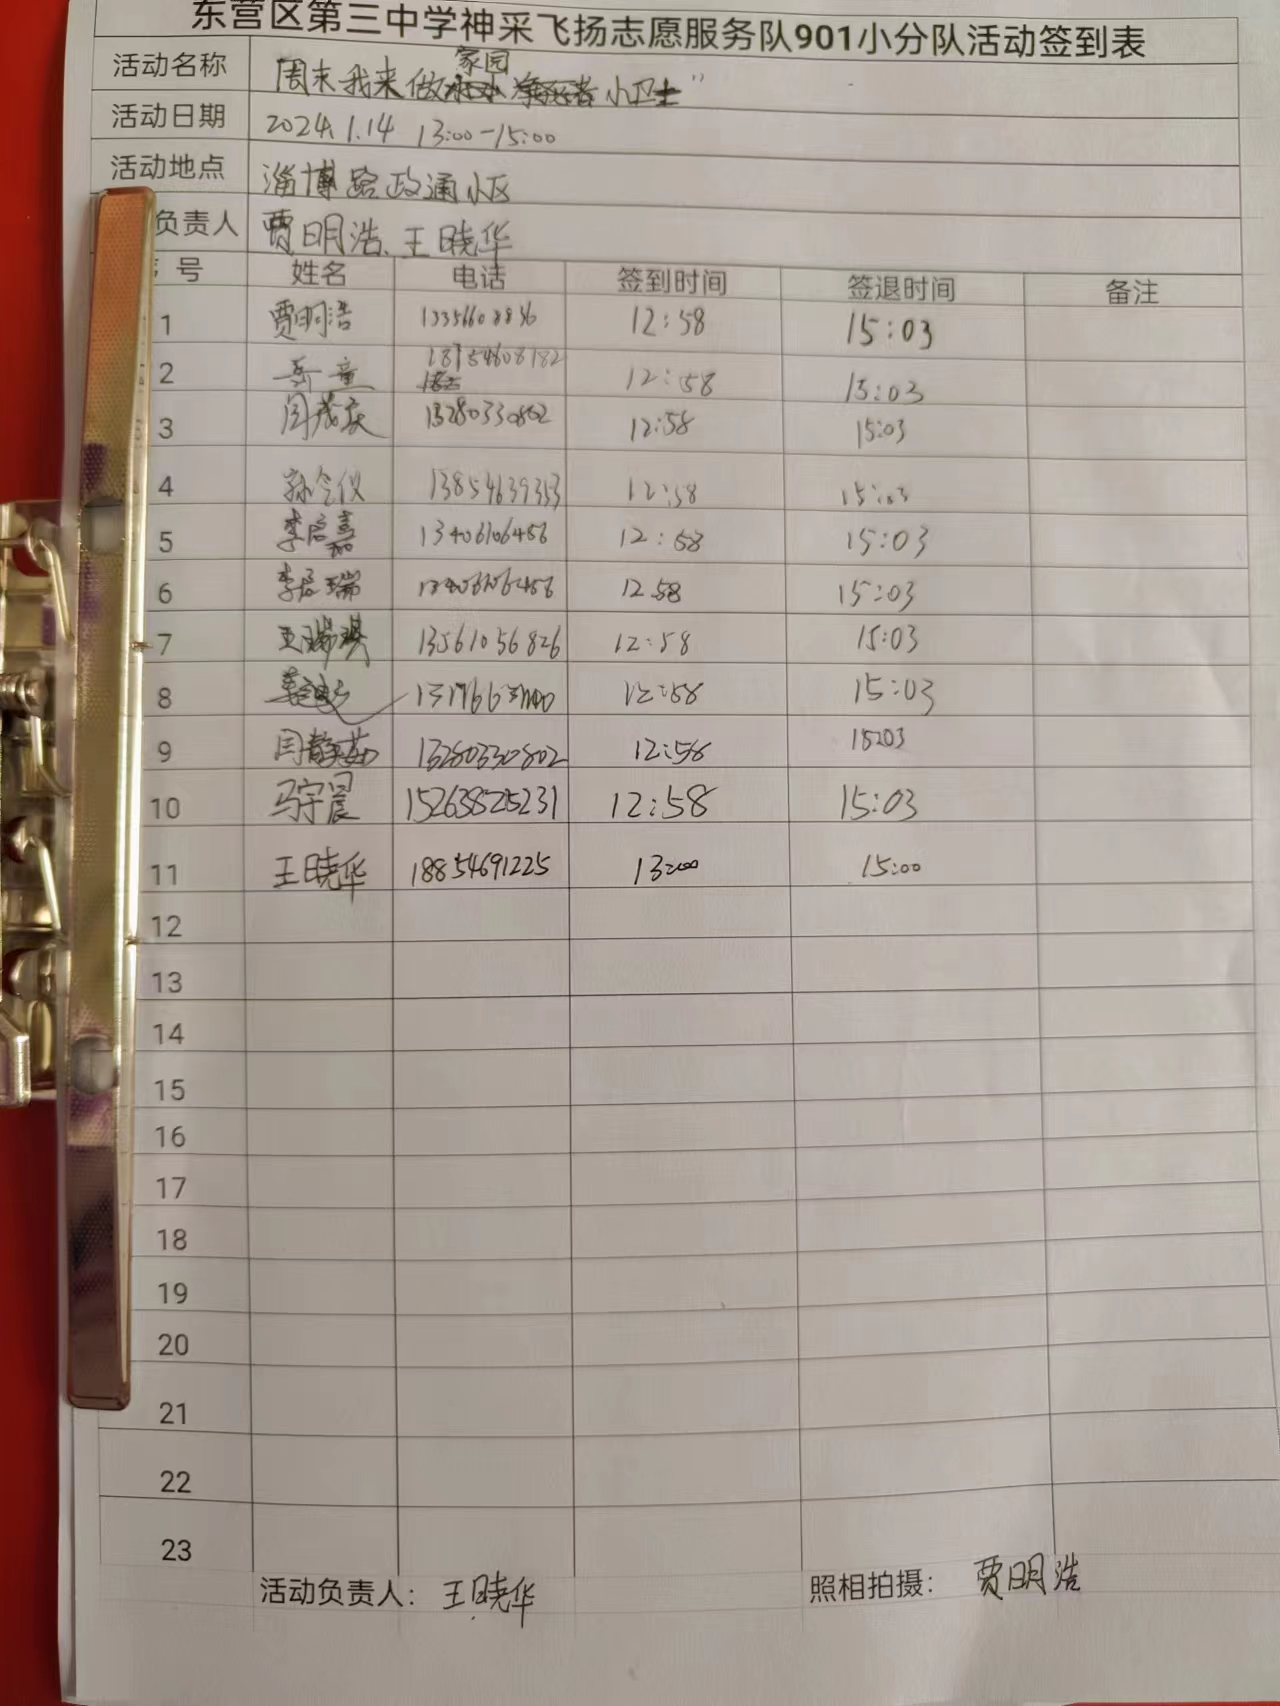 东营区第三中学神采飞扬志愿服务队901小分队活动签到表
家园
活动名称 周末我来做 小卫士”
活动日期 2024.1.14 13:00-15:00
活动地点 淄博路政通小区
负责人 贾明浩、王晓华
号 姓名 电话 签到时间 签退时间 备注
1 贾明浩 12:58 15:03
2 岳童 18754608182 12:58 15:03
3 13280330802 12:58 15:03
4 孙令仪 13854639353 12:58 15:03
5 李启嘉 13406106456 12:58 15:03
6 李启瑞 13406106456 12:58 15:03
7 王瑞琪 13561056826 12:58 15:03
8 12:58 15:03
9 闫静茹 13280330802 12:58 15:03
10 马宇晨 15263825231 12:58 15:03
11 王晓华 18854691225 13:00 15:00
12
13
14
15
16
17
18
19
20
21
22
23
活动负责人：王晓华 照相拍摄：贾明浩